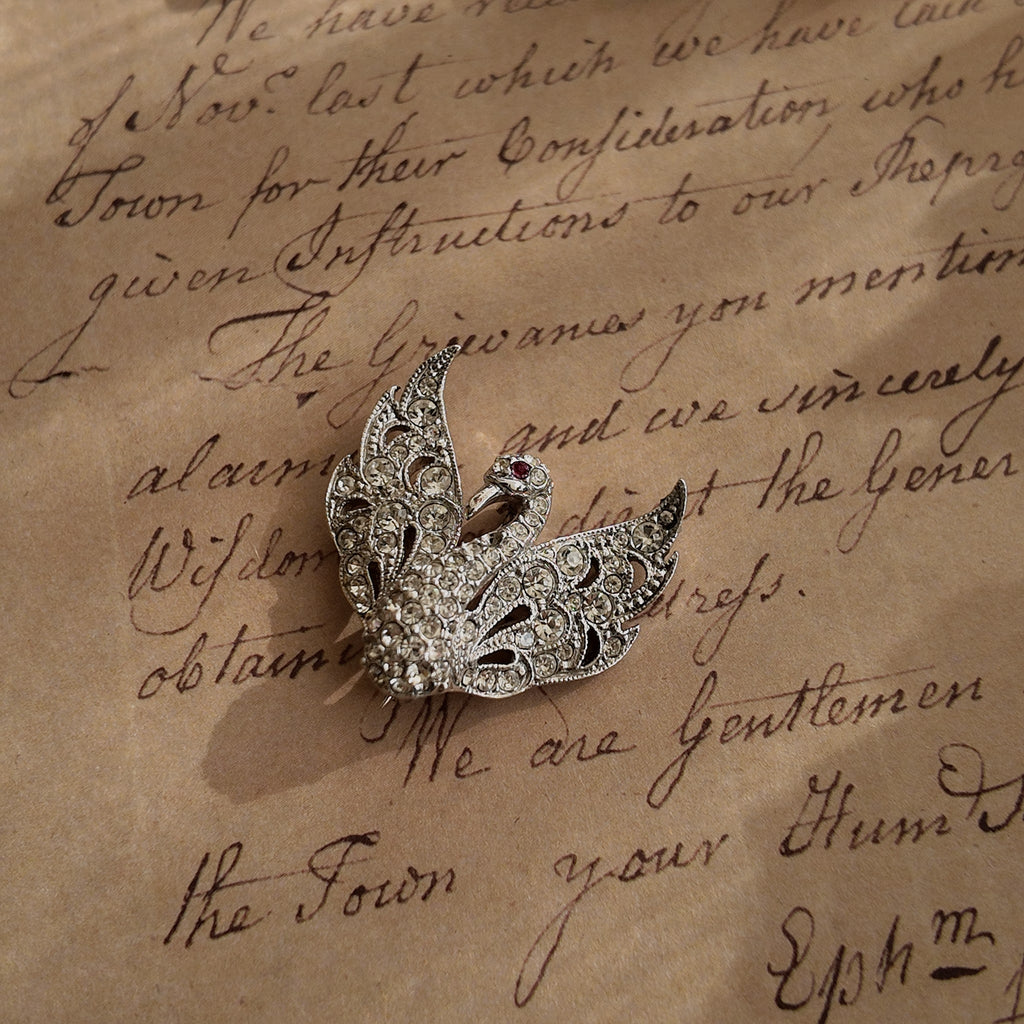 We have
of Novr. last which we have laid
Town for their Conſideration who h
given Inſtructions to our Repreſ
The Grievances you mention
alarm and we sincerely
Wiſdom direct the Gener
obtain dreſs.
We are Gentlemen
the Town your Humb
Ephm